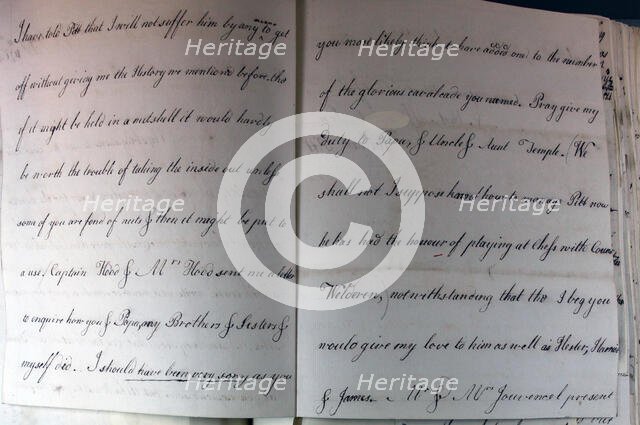 I have told Pitt that I will not suffer him by any means to get
off without giving me the History we mentioned before, tho
if it might be held in a nutshell it would hardly
be worth the trouble of taking the inside out unless
some of you are fond of nuts & then it might be put to
a use. Captain Hood & Mrs Hood sent me a letter
to enquire how you & Papa, my Brothers & Sisters &
myself did. I should have been very sorry as you
you most likely think to have added one to the number
of the glorious cavalcade you named. Pray give my
duty to Papa & Uncle & Aunt Temple. (We
shall not I suppose know how to Pitt now
he has had the honour of playing at Chess with Count
Welderen,) notwithstanding that tho I beg you
would give my love to him as well as Hester, Harriot
& James. Mr & Mrs Jouvencel present
Heritage
Heritage
Heritage
Heritage
Heritage
Heritage
©